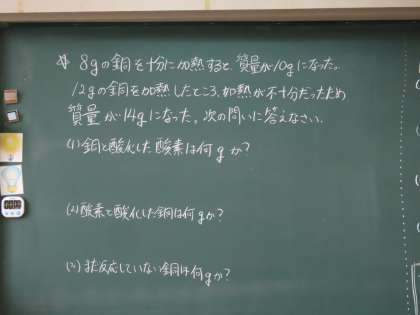 8gの銅を十分に加熱すると、質量が10gになった。
12gの銅を加熱したところ、加熱が不十分だったため
質量が14gになった。次の問いに答えなさい。
(1)銅と酸化した酸素は何gか?
(2)酸素と酸化した銅は何gか?
(3)まだ反応していない銅は何gか?